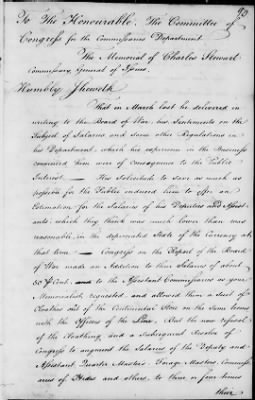 93
To The Honourable, The Committee of
Congress for the Commissaries Department
The Memorial of Charles Stewart
Commissary General of Issues.
Humbly Sheweth
That in March last he delivered in
writing to the Board of War, his Sentiments on the
Subject of Salaries and some other Regulations in
his Department, which his experience in the Business
convinced him were of Consequence to the Public
Interest — His Solicitude to save as much as
possible for the Public induced him to offer an
Estimation for the Salaries of his Deputies and Assist
ants, which they think was much lower than was
reasonable, in the depreciated State of the Currency at
that time — Congress on the Report of the Board
of War made an Addition to their Salaries of about
50 P Cent, and to the Assistant Commissaries as your
Memorialist requested, and allowed them a Suit of
Cloaths out of the Continental Store on the Same terms
with the Officers of the Line. But the now refusal
of the Cloathing, and a Subsequent Resolve of
Congress to augment the Salaries of the Deputy and
Assistant Quarter Masters, Forage Masters, Commiss
aries of Hides and others, to three or four times
their